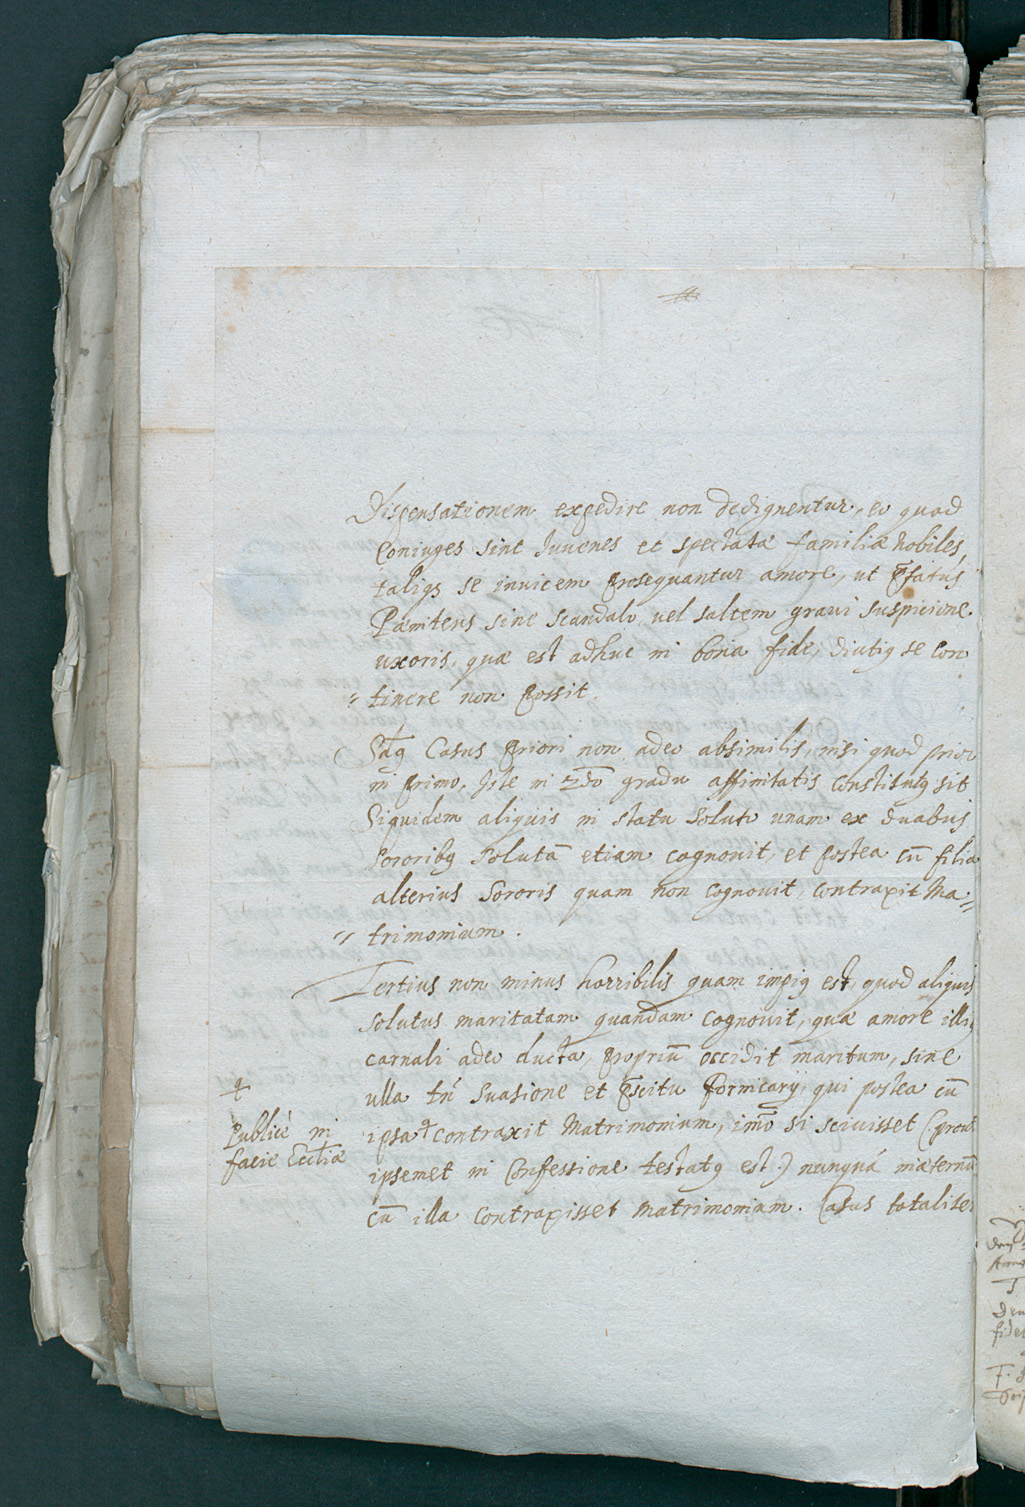 Dispensationem expedire non dedignentur, eo quod
Coniuges sint Juuenes et spectatæ familiæ Nobiles,
taliqȝ se inuicem prosequantur amore, ut p̄fatus
Pænitens sine scandalo, uel saltem graui suspicione
uxoris, quæ est adhuc in bona fide, diutiꝰ se con
〃 tinere non possit.
Casus priori non adeo absimilis, nisi quod prior
in primo, Iste in 2do gradu affinitatis constitutꝰ sit
Siquidem aliquis in statu soluto unam ex duabus
sororibꝰ solutā etiam cognouit, et postea cū filia
alterius Sororis quam non cognouit, contraxit Ma=
〃 trimonium.
Tertius non minus horribilis quam impiꝰ est, quod aliquis
solutus maritatam quandam cognouit, quæ amore illi
carnali adeo ducta, propriū occidit maritum, sine
ulla tn̄ suasione et p̄scitu fornicarij, qui postea cū
+
Publicè in
facie Eccliæ
ipsa + contraxit Matrimonium, imo si sciuisset (: prout
ipsemet in Confessione testatꝰ est :) nunquā in æternū
cū illa contraxisset Matrimonium. Casus totaliter